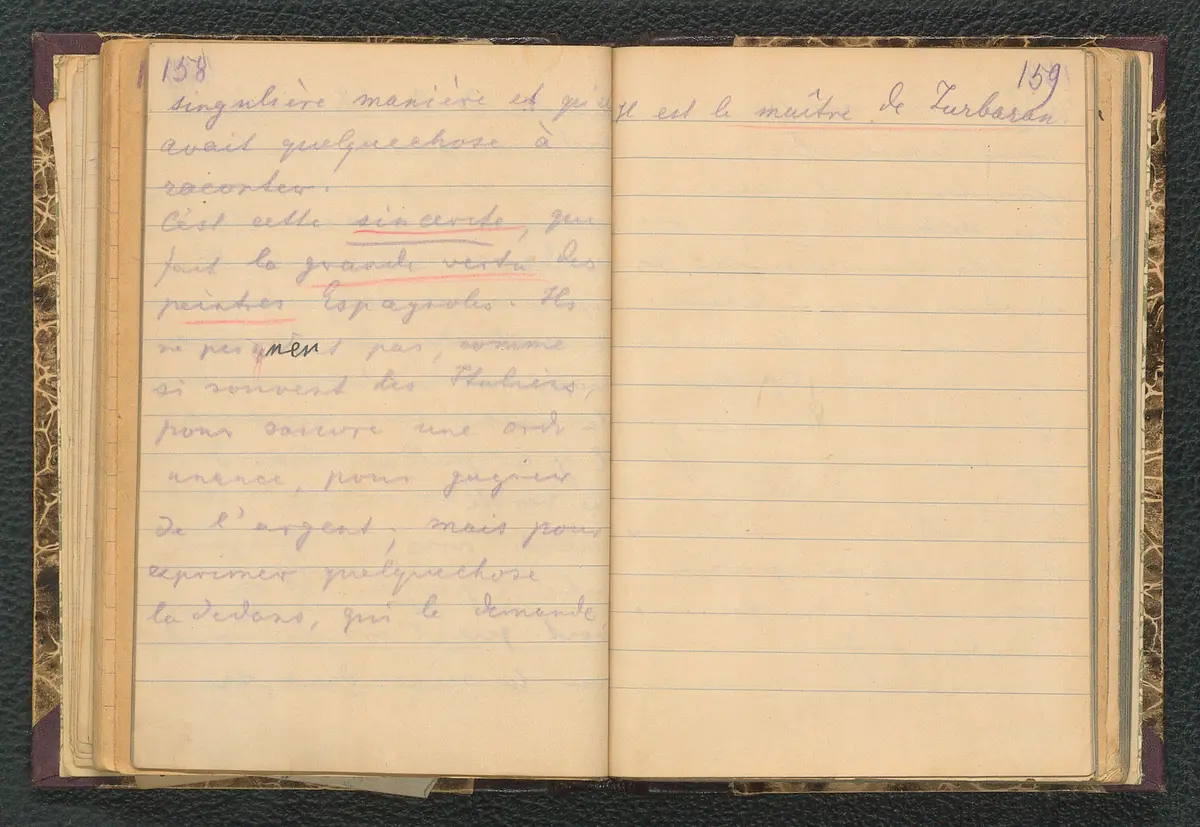 158
singulière manière et qui
avait quelquechose à
raconter.
C'est cette sincerite, qui
fait la grande vertu des
peintres Espagnols. Ils
ne peignent pas, comme
si souvent des Italiens,
pour suivre une ord
unance, pour gagner
de l'argent, mais pour
exprimer quelquechose
la dedans, qui le demande
159
Il est le maître de Zurbaran